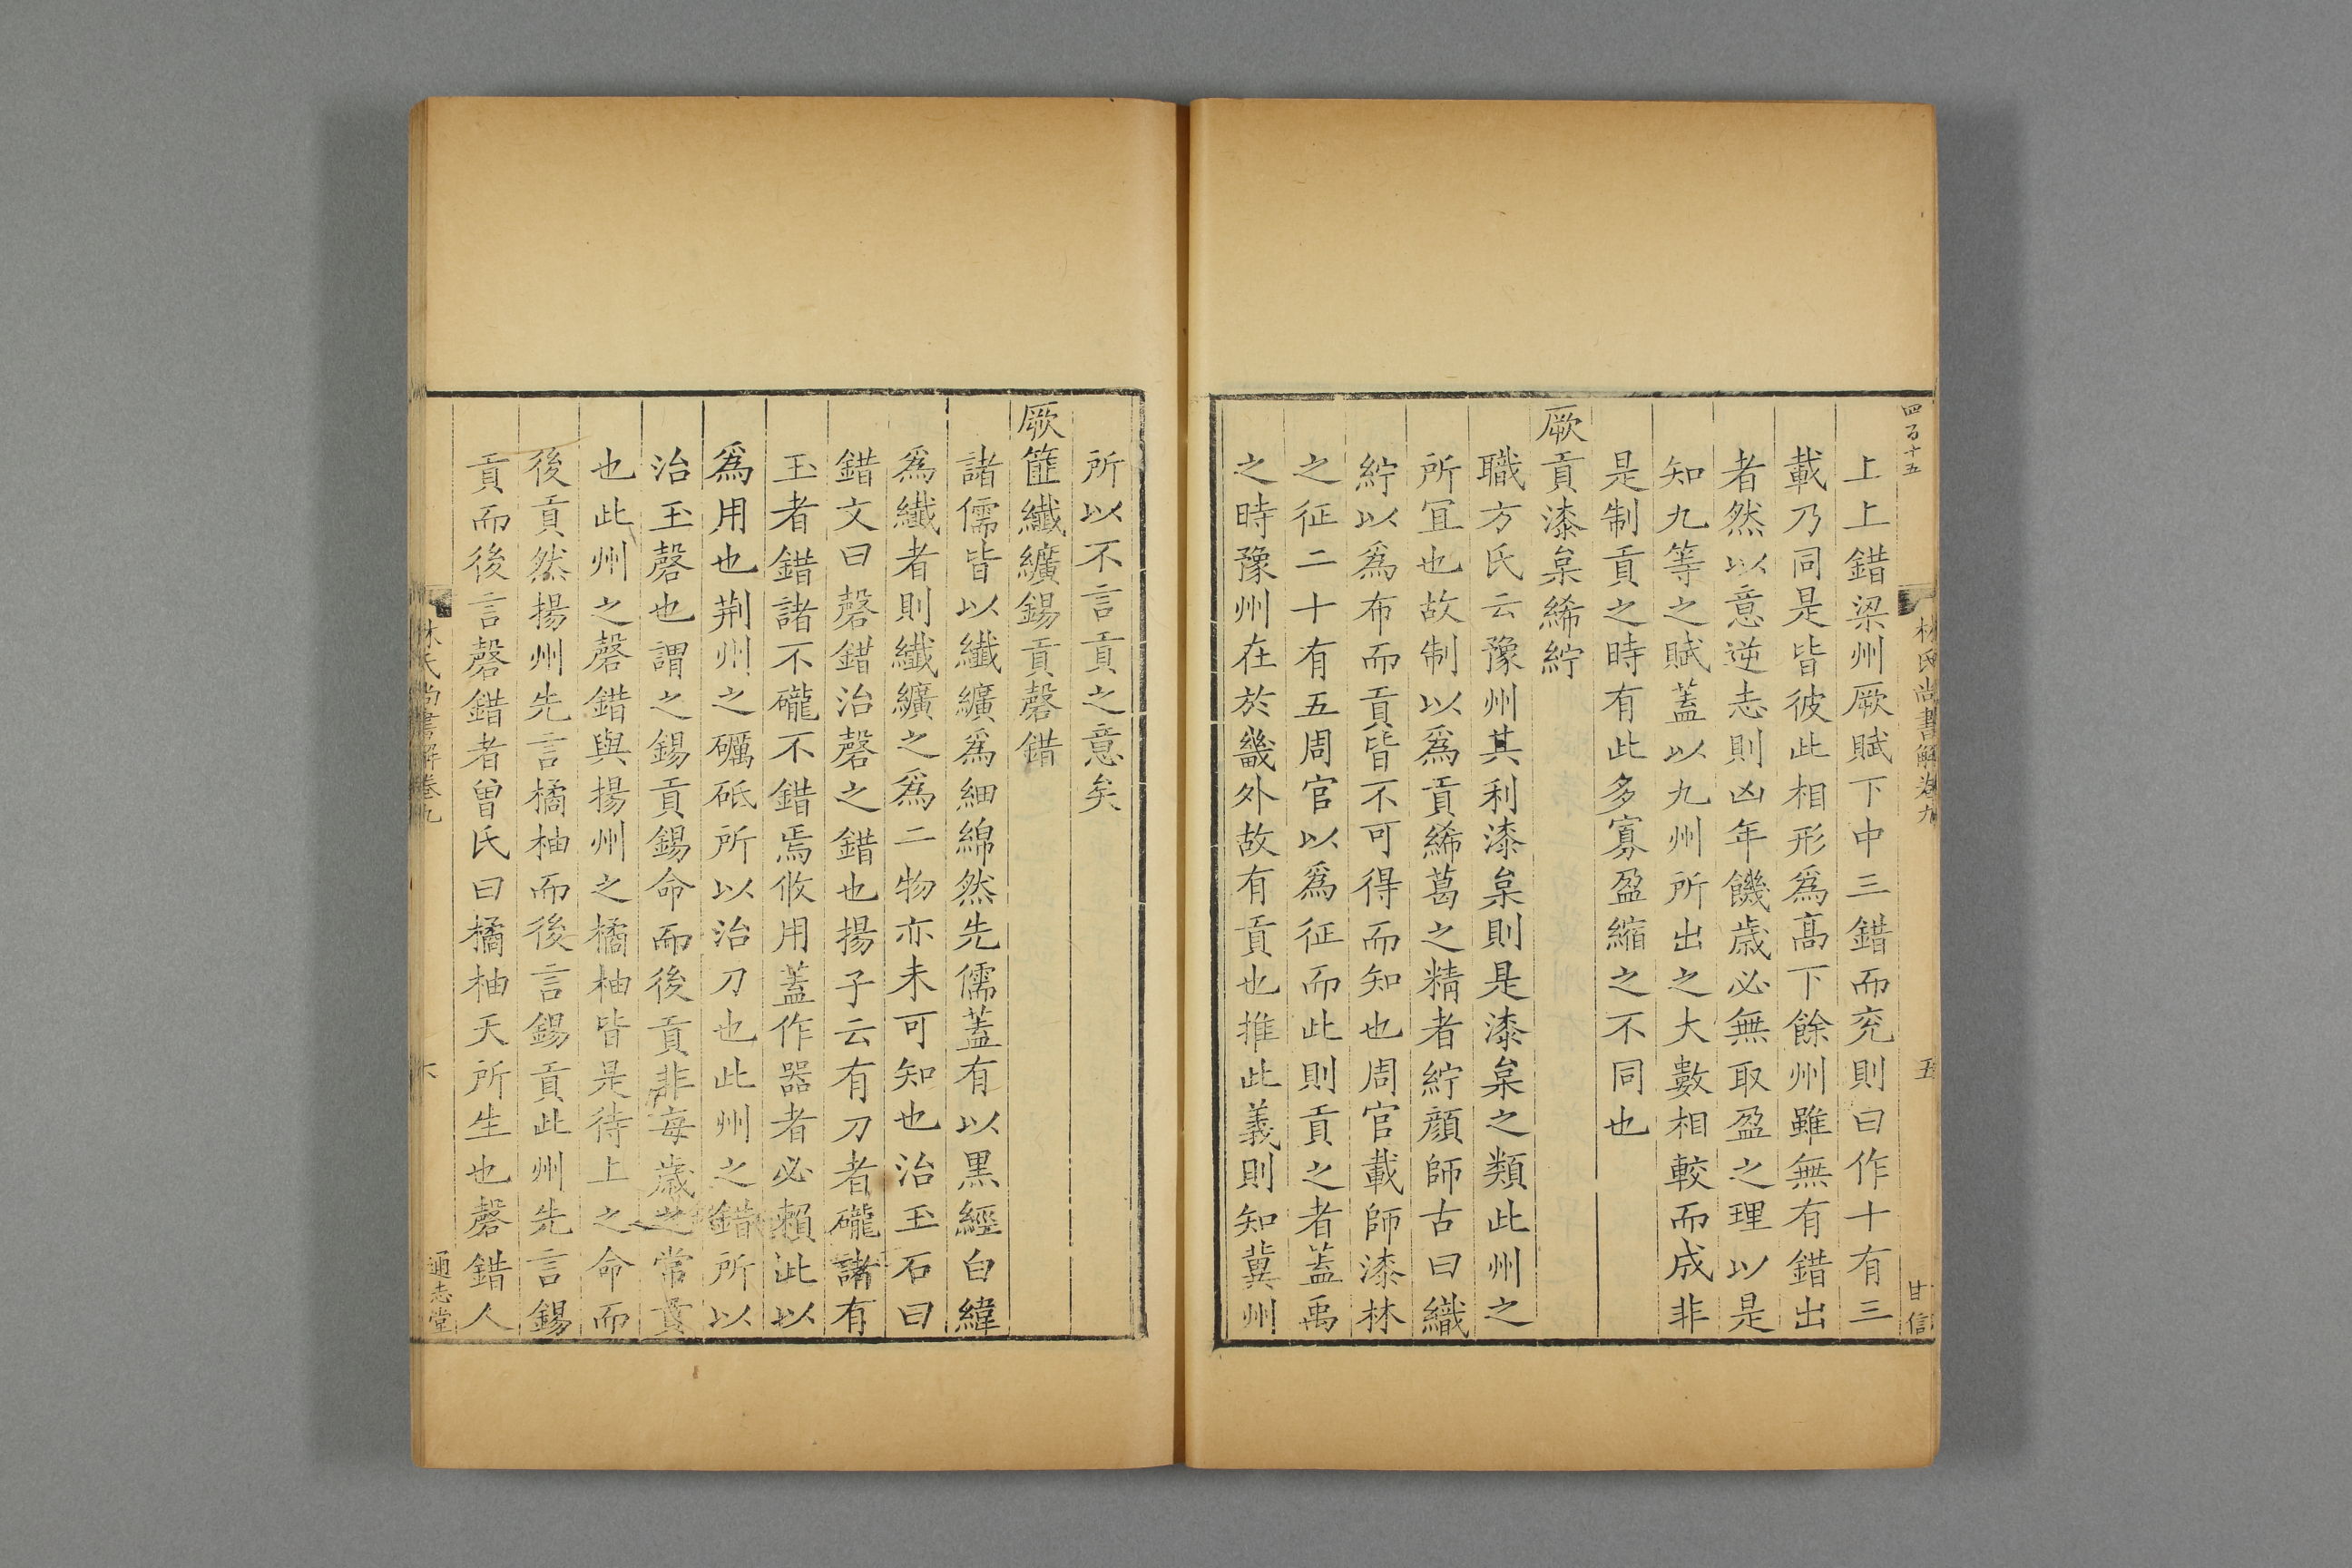 四百十五
林氏尚書解卷九
五
甘信
上上錯梁州厥賦下中三錯而兖則曰作十有三
載乃同是皆彼此相形爲髙下餘州雖無有錯出
者然以意逆志則凶年饑歳必無取盈之理以是
知九等之賦蓋以九州所出之大數相較而成非
是制貢之時有此多寡盈縮之不同也
厥貢漆枲絺紵
職方氏云豫州其利漆枲則是漆枲之類此州之
所宜也故制以爲貢絺葛之精者紵顔師古曰織
紵以爲布而貢皆不可得而知也周官載師漆林
之征二十有五周官以爲征而此則貢之者蓋禹
之時豫州在於畿外故有貢也推此義則知冀州
所以不言貢之意矣
厥篚纖纊錫貢磬錯
諸儒皆以纖纊爲細綿然先儒蓋有以黒經白緯
爲纖者則纖纊之爲二物亦未可知也治玉石曰
錯文曰磬錯治磬之錯也揚子云有刀者礲諸有
玉者錯諸不礲不錯焉攸用蓋作器者必賴此以
爲用也荆州之礪砥所以治刀也此州之錯所以
治玉磬也謂之錫貢錫命而後貢非每歳之常貢
也此州之磬錯與揚州之橘柚皆是待上之命而
後貢然揚州先言橘柚而後言錫貢此州先言錫
貢而後言磬錯者曽氏曰橘柚天所生也磬錯人
林氏尚書解卷九
通志堂